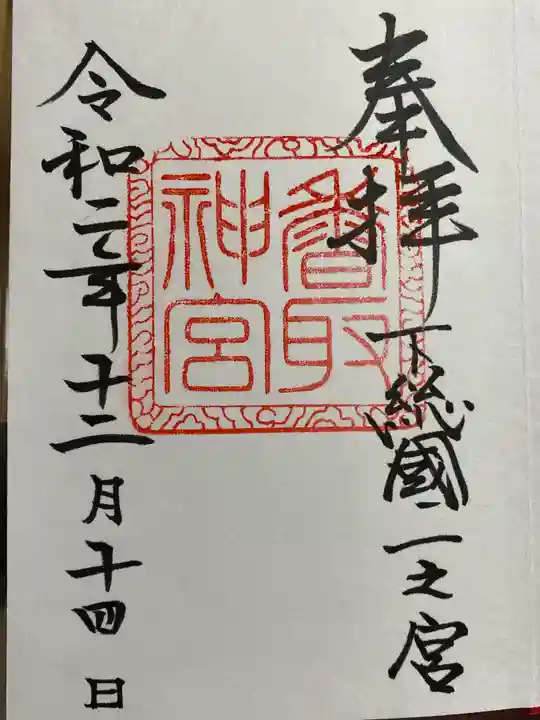 奉拝
下総國一之宮
香取神宮
令和二年十二月十四日